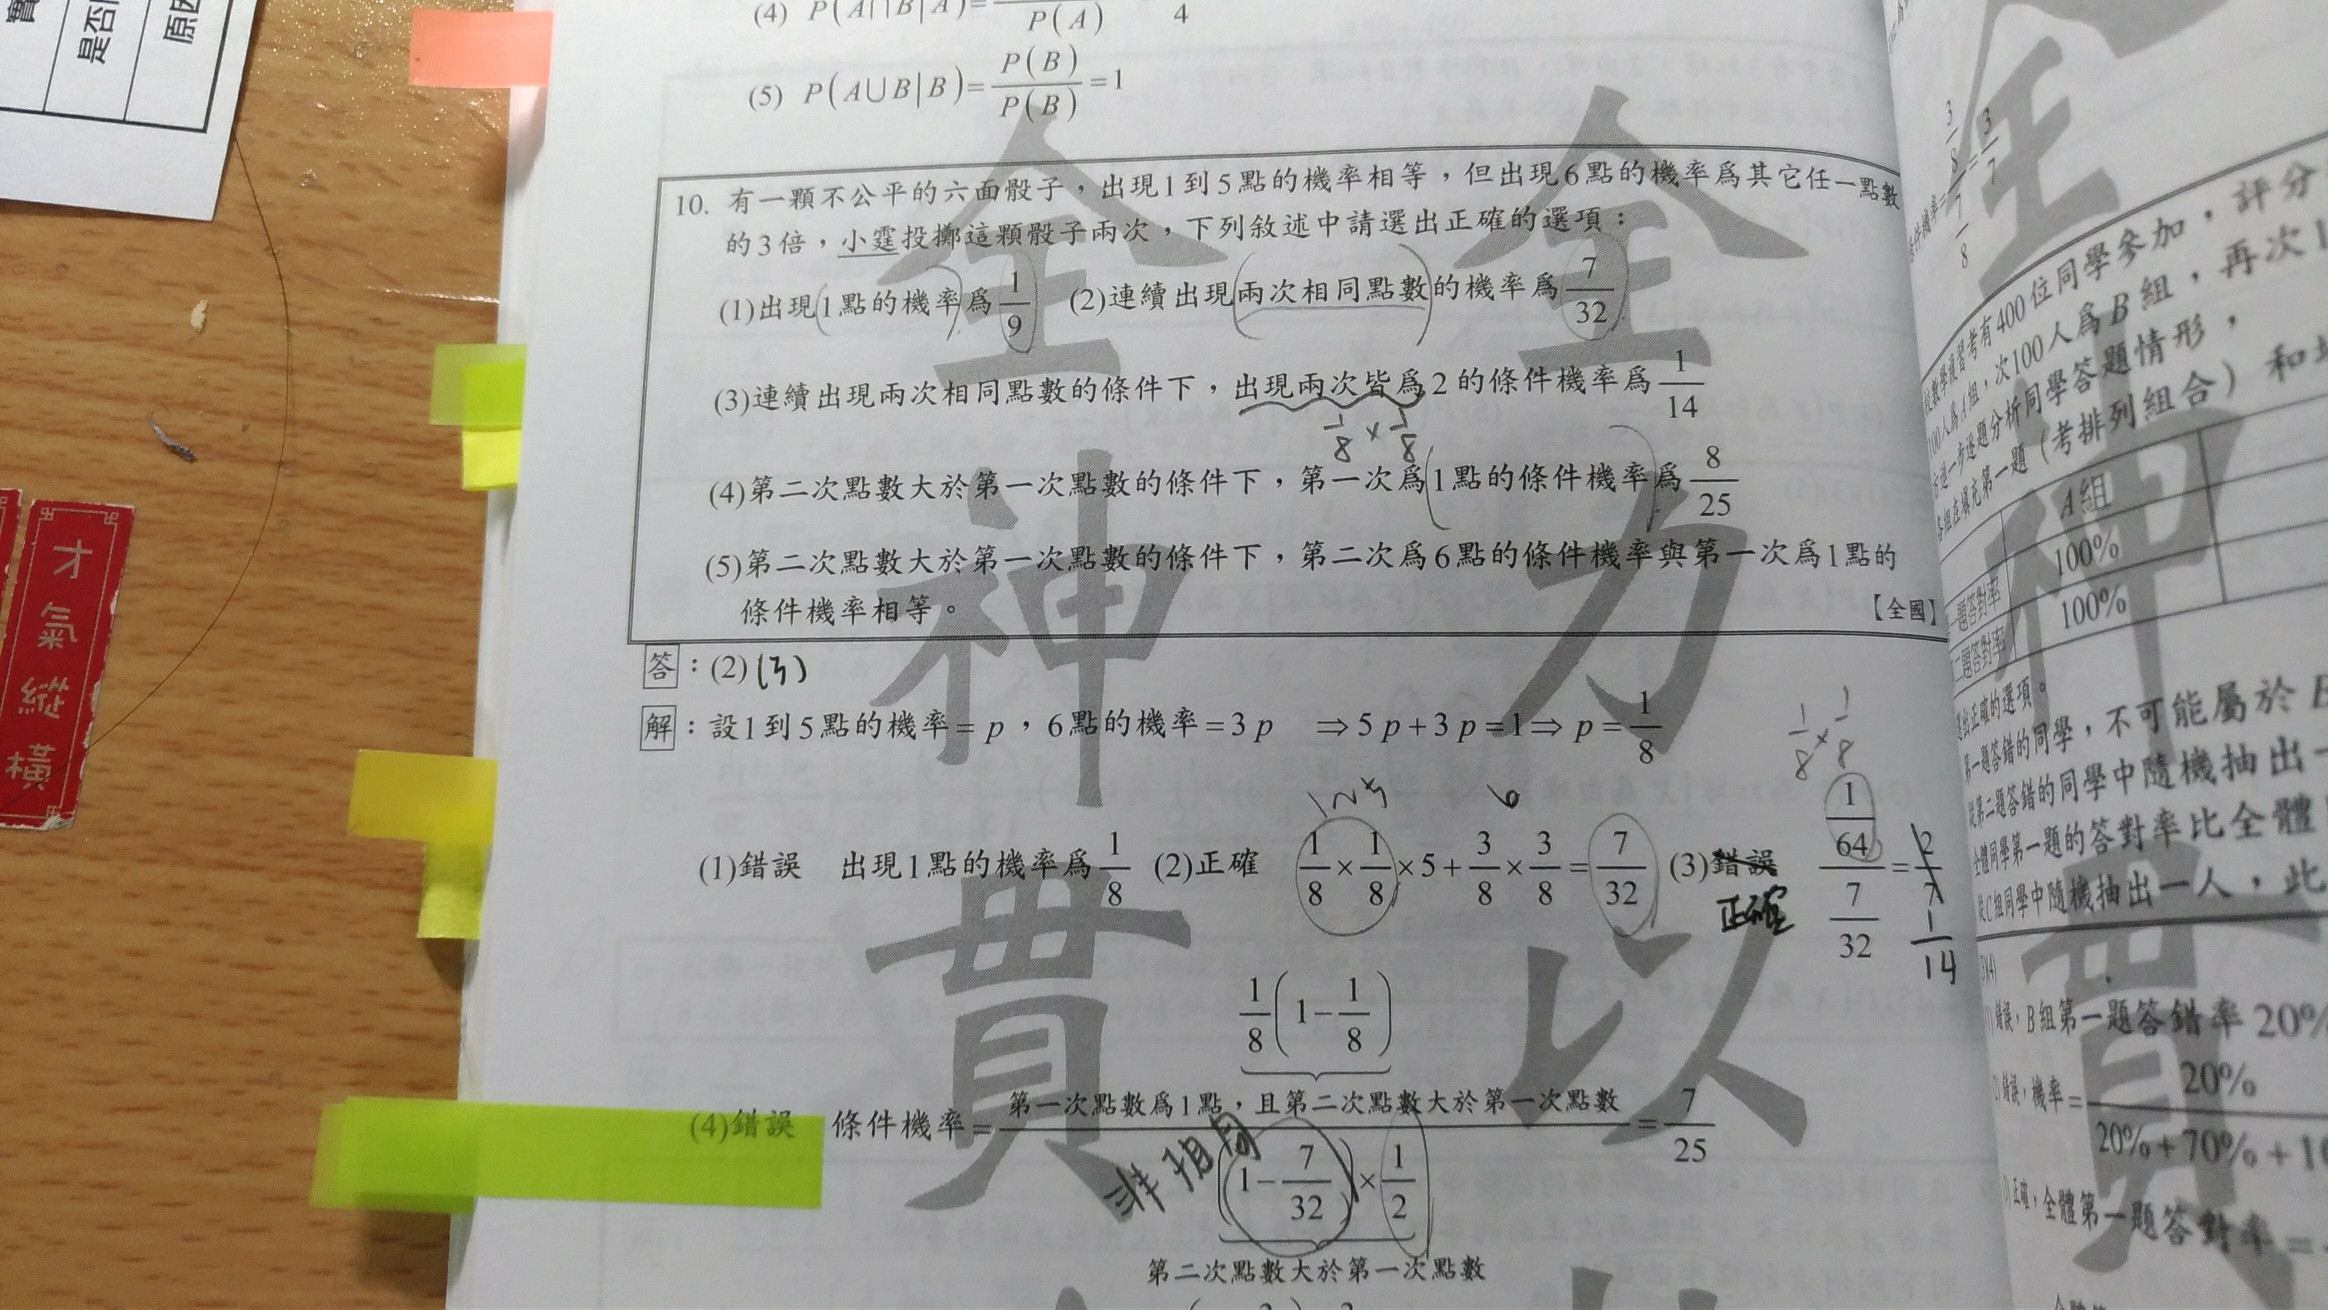 是否
原因
才氣縱橫
(4) P(A∩B|A)= P(A) 4
(5) P(A∪B|B)= P(B)/P(B) =1
10. 有一顆不公平的六面骰子，出現1到5點的機率相等，但出現6點的機率為其它任一點數
的3倍，小霆投擲這顆骰子兩次，下列敘述中請選出正確的選項：
(1)出現1點的機率為 1/9 (2)連續出現兩次相同點數的機率為 7/32
(3)連續出現兩次相同點數的條件下，出現兩次皆為2的條件機率為 1/14
1/8 × 1/8
(4)第二次點數大於第一次點數的條件下，第一次為1點的條件機率為 8/25
(5)第二次點數大於第一次點數的條件下，第二次為6點的條件機率與第一次為1點的
條件機率相等。 【全國】
答：(2)(3)
解：設1到5點的機率=p，6點的機率=3p ⇒5p+3p=1⇒p= 1/8
1/8 × 1/8
1~5 6
(1)錯誤 出現1點的機率為 1/8 (2)正確 1/8 × 1/8 ×5+ 3/8 × 3/8 = 7/32 (3)錯誤 1/64 / 7/32 = 2/7
正確 1/14
1/8 (1- 1/8)
第一次點數為1點，且第二次點數大於第一次點數
(4)錯誤 條件機率= = 7/25
非相同 (1- 7/32) × 1/2
第二次點數大於第一次點數
全神貫
全力以
條件機率= 3/8 / 7/8 = 3/7
數學複習考有400位同學參加，評分
100人為A組，次100人為B組，再次1
步逐題分析同學答題情形，
第一題（考排列組合）和
A組
一題答對率 100%
二題答對率 100%
選出正確的選項。
第一題答錯的同學，不可能屬於B
從第二題答錯的同學中隨機抽出一
全體同學第一題的答對率比全體
從C組同學中隨機抽出一人，此
錯誤，B組第一題答錯率20%
錯誤，機率= 20%
20%+70%+1
正確，全體第一題答對率=